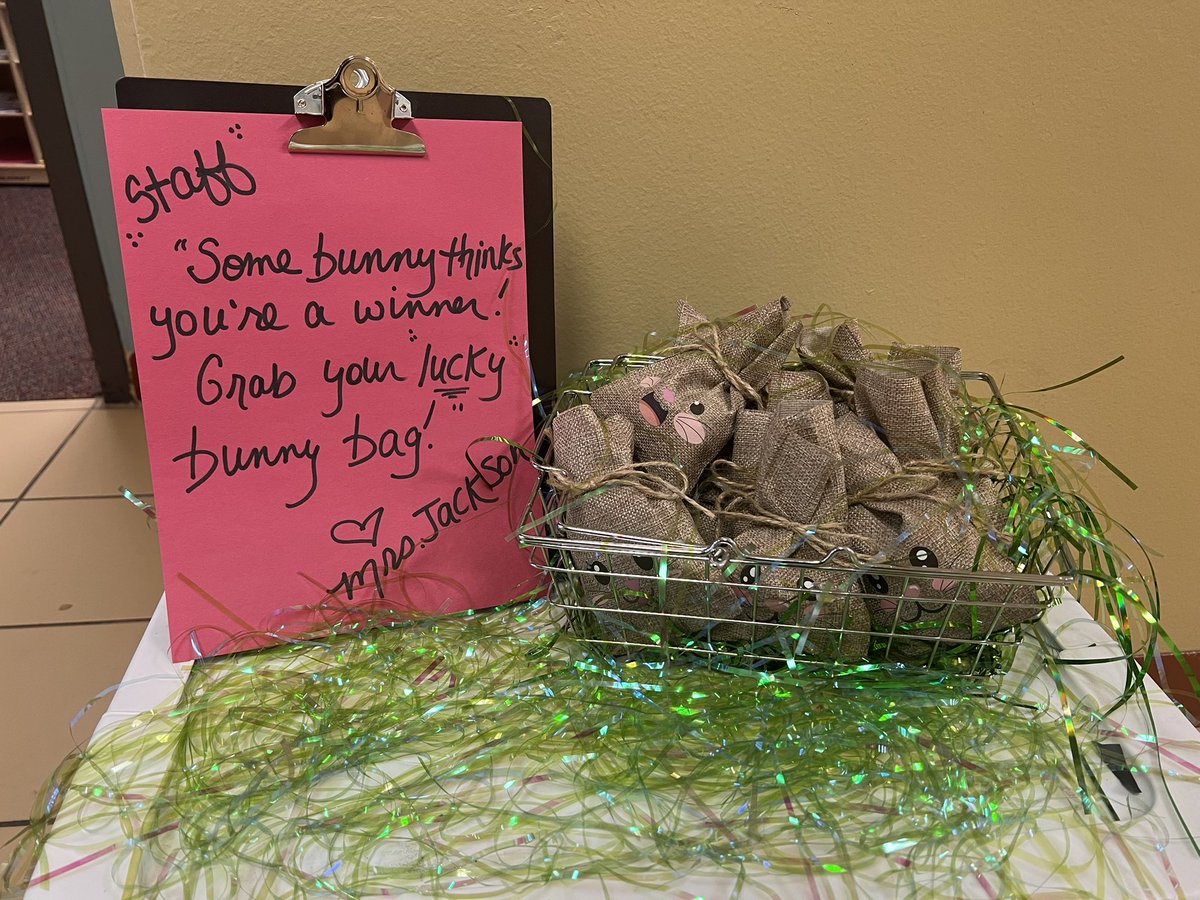 Staff
"Some bunny thinks
you're a winner!
Grab your "lucky"
bunny bag!"
♡
Mrs. Jackson